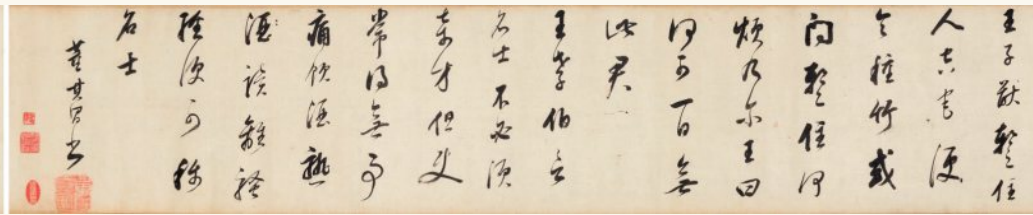 王子猷暫住
人空宅便
令種竹或
問暫住何
煩乃尔王曰
何可一日無
此君
王孝伯言
名士不必須
奇才但使
常得無事
痛飲酒熟
酒讀離騷
經便可稱
名士
董其昌書